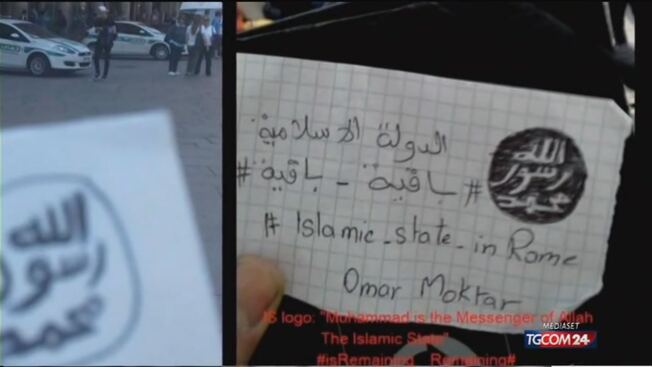 الله
رسول
محمد
الدولة الاسلامية
# باقية - باقية #
# Islamic_state_in Rome
Omar Moktar
الله
رسول
محمد
IS logo: "Muhammad is the Messenger of Allah
The Islamic State"
#isRemaining_ Remaining#
MEDIASET
TGCOM24